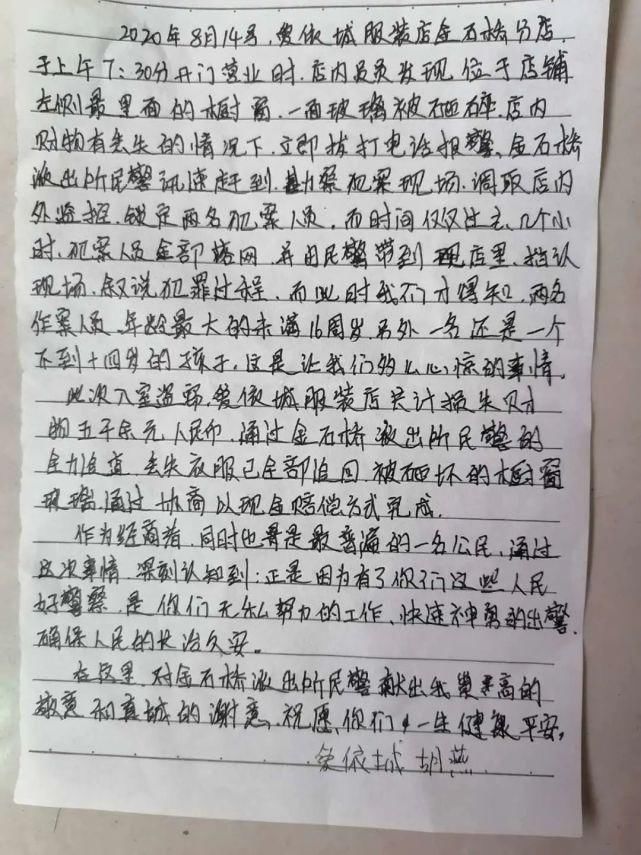 2020年8月14号,爱依城服装店金石桥分店,
于上午7:30分开门营业时,店内员员发现位于店铺
左侧最里面的橱窗,一面玻璃被砸碎,店内
财物有丢失的情况下,立即拔打电话报警,金石桥
派出所民警讯速赶到,勘察犯案现场,调取店内
外监控,锁定两名犯案人员,而时间仅仅过去几个小
时,犯案人员全部捕网,并由民警带到现店里,指认
现场,叙说犯罪过程,而此时我们才得知,两名
作案人员,年龄最大的未满16周岁,另外一名还是一个
不到十四岁的孩子,这是让我们的心惊的事情。
此次入室盗窃,爱依城服装店共计损失财
物五千余元人民币,通过金石桥派出所民警的
全力追查,丢失衣服已全部追回,被砸坏的橱窗
玻璃,通过协商以现金赔偿方式完成。
作为经商者,同时也是最普遍的一名公民,通过
这次事情,深刻认知到:正是因为有了你们这些人民
好警察,是你们无私努力的工作、快速神勇的出警,
确保人民的长治久安。
在这里,对金石桥派出所民警献出我崇高的
敬意和真诚的谢意,祝愿,你们一生健康平安。
爱依城 胡燕